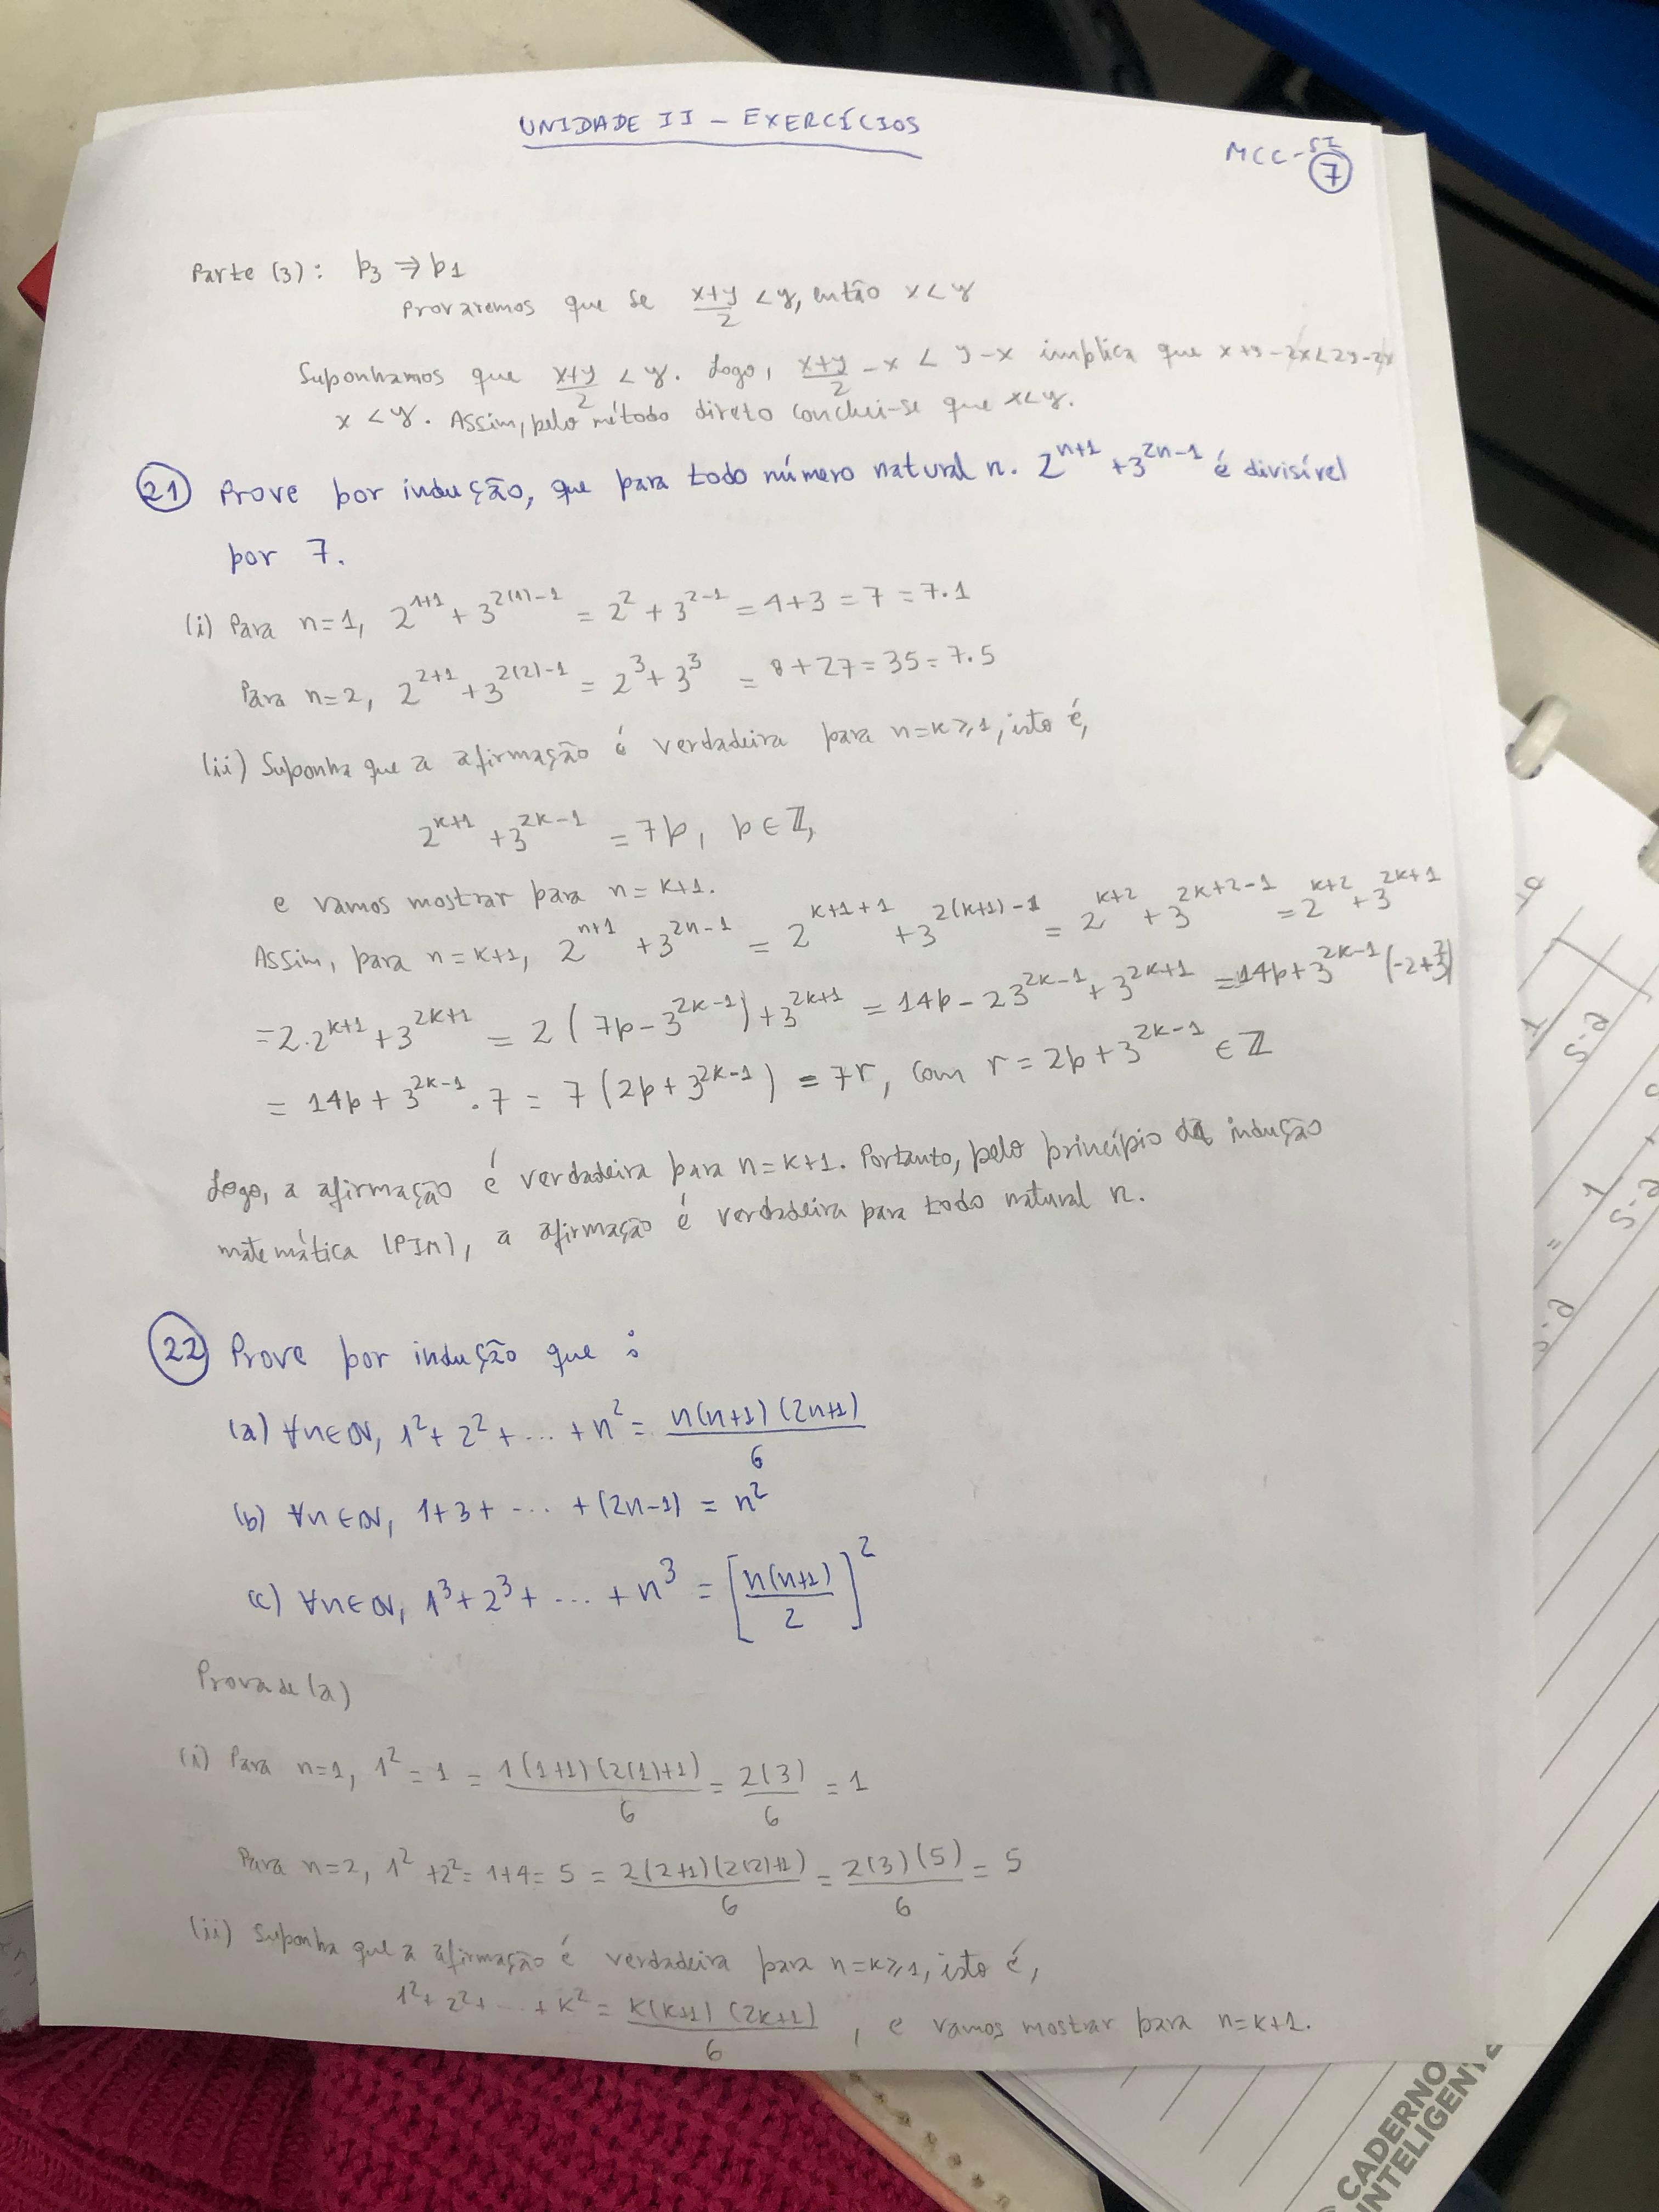 UNIDADE II - EXERCÍCIOS
MCC-SI
7
Parte (3): p3 ⇒ p1
Provaremos que se (x+y)/2 < y, então x<y
Suponhamos que (x+y)/2 < y. Logo, (x+y)/2 - x < y-x implica que x+y-2x<2y-2x
x < y. Assim, pelo método direto conclui-se que x<y.
21 Prove por indução, que para todo número natural n. 2^(n+1) + 3^(2n-1) é divisível
por 7.
(i) Para n=1, 2^(1+1) + 3^(2(1)-1) = 2^2 + 3^(2-1) = 4+3 = 7 = 7.1
Para n=2, 2^(2+1) + 3^(2(2)-1) = 2^3 + 3^3 = 8+27 = 35 = 7.5
(ii) Suponha que a afirmação é verdadeira para n=k≥1, isto é,
2^(k+1) + 3^(2k-1) = 7p, p∈ℤ,
e vamos mostrar para n=k+1.
Assim, para n=k+1, 2^(n+1) + 3^(2n-1) = 2^(k+1+1) + 3^(2(k+1)-1) = 2^(k+2) + 3^(2k+2-1) = 2^(k+2) + 3^(2k+1)
= 2.2^(k+1) + 3^(2k+1) = 2(7p-3^(2k-1)) + 3^(2k+1) = 14p - 2 3^(2k-1) + 3^(2k+1) = 14p + 3^(2k-1)(-2+3^2)
= 14p + 3^(2k-1) . 7 = 7(2p+3^(2k-1)) = 7r, com r = 2p+3^(2k-1) ∈ ℤ
Logo, a afirmação é verdadeira para n=k+1. Portanto, pelo princípio da indução
matemática (PIM), a afirmação é verdadeira para todo natural n.
22 Prove por indução que:
(a) ∀n∈ℕ, 1^2 + 2^2 + ... + n^2 = n(n+1)(2n+1)/6
(b) ∀n∈ℕ, 1+3+ ... +(2n-1) = n^2
(c) ∀n∈ℕ, 1^3 + 2^3 + ... + n^3 = [n(n+1)/2]^2
Prova de (a)
(i) Para n=1, 1^2 = 1 = 1(1+1)(2(1)+1)/6 = 2(3)/6 = 1
Para n=2, 1^2 + 2^2 = 1+4 = 5 = 2(2+1)(2(2)+1)/6 = 2(3)(5)/6 = 5
(ii) Suponha que a afirmação é verdadeira para n=k≥1, isto é,
1^2 + 2^2 + ... + k^2 = k(k+1)(2k+1)/6, e vamos mostrar para n=k+1.
CADERNO
INTELIGENTE